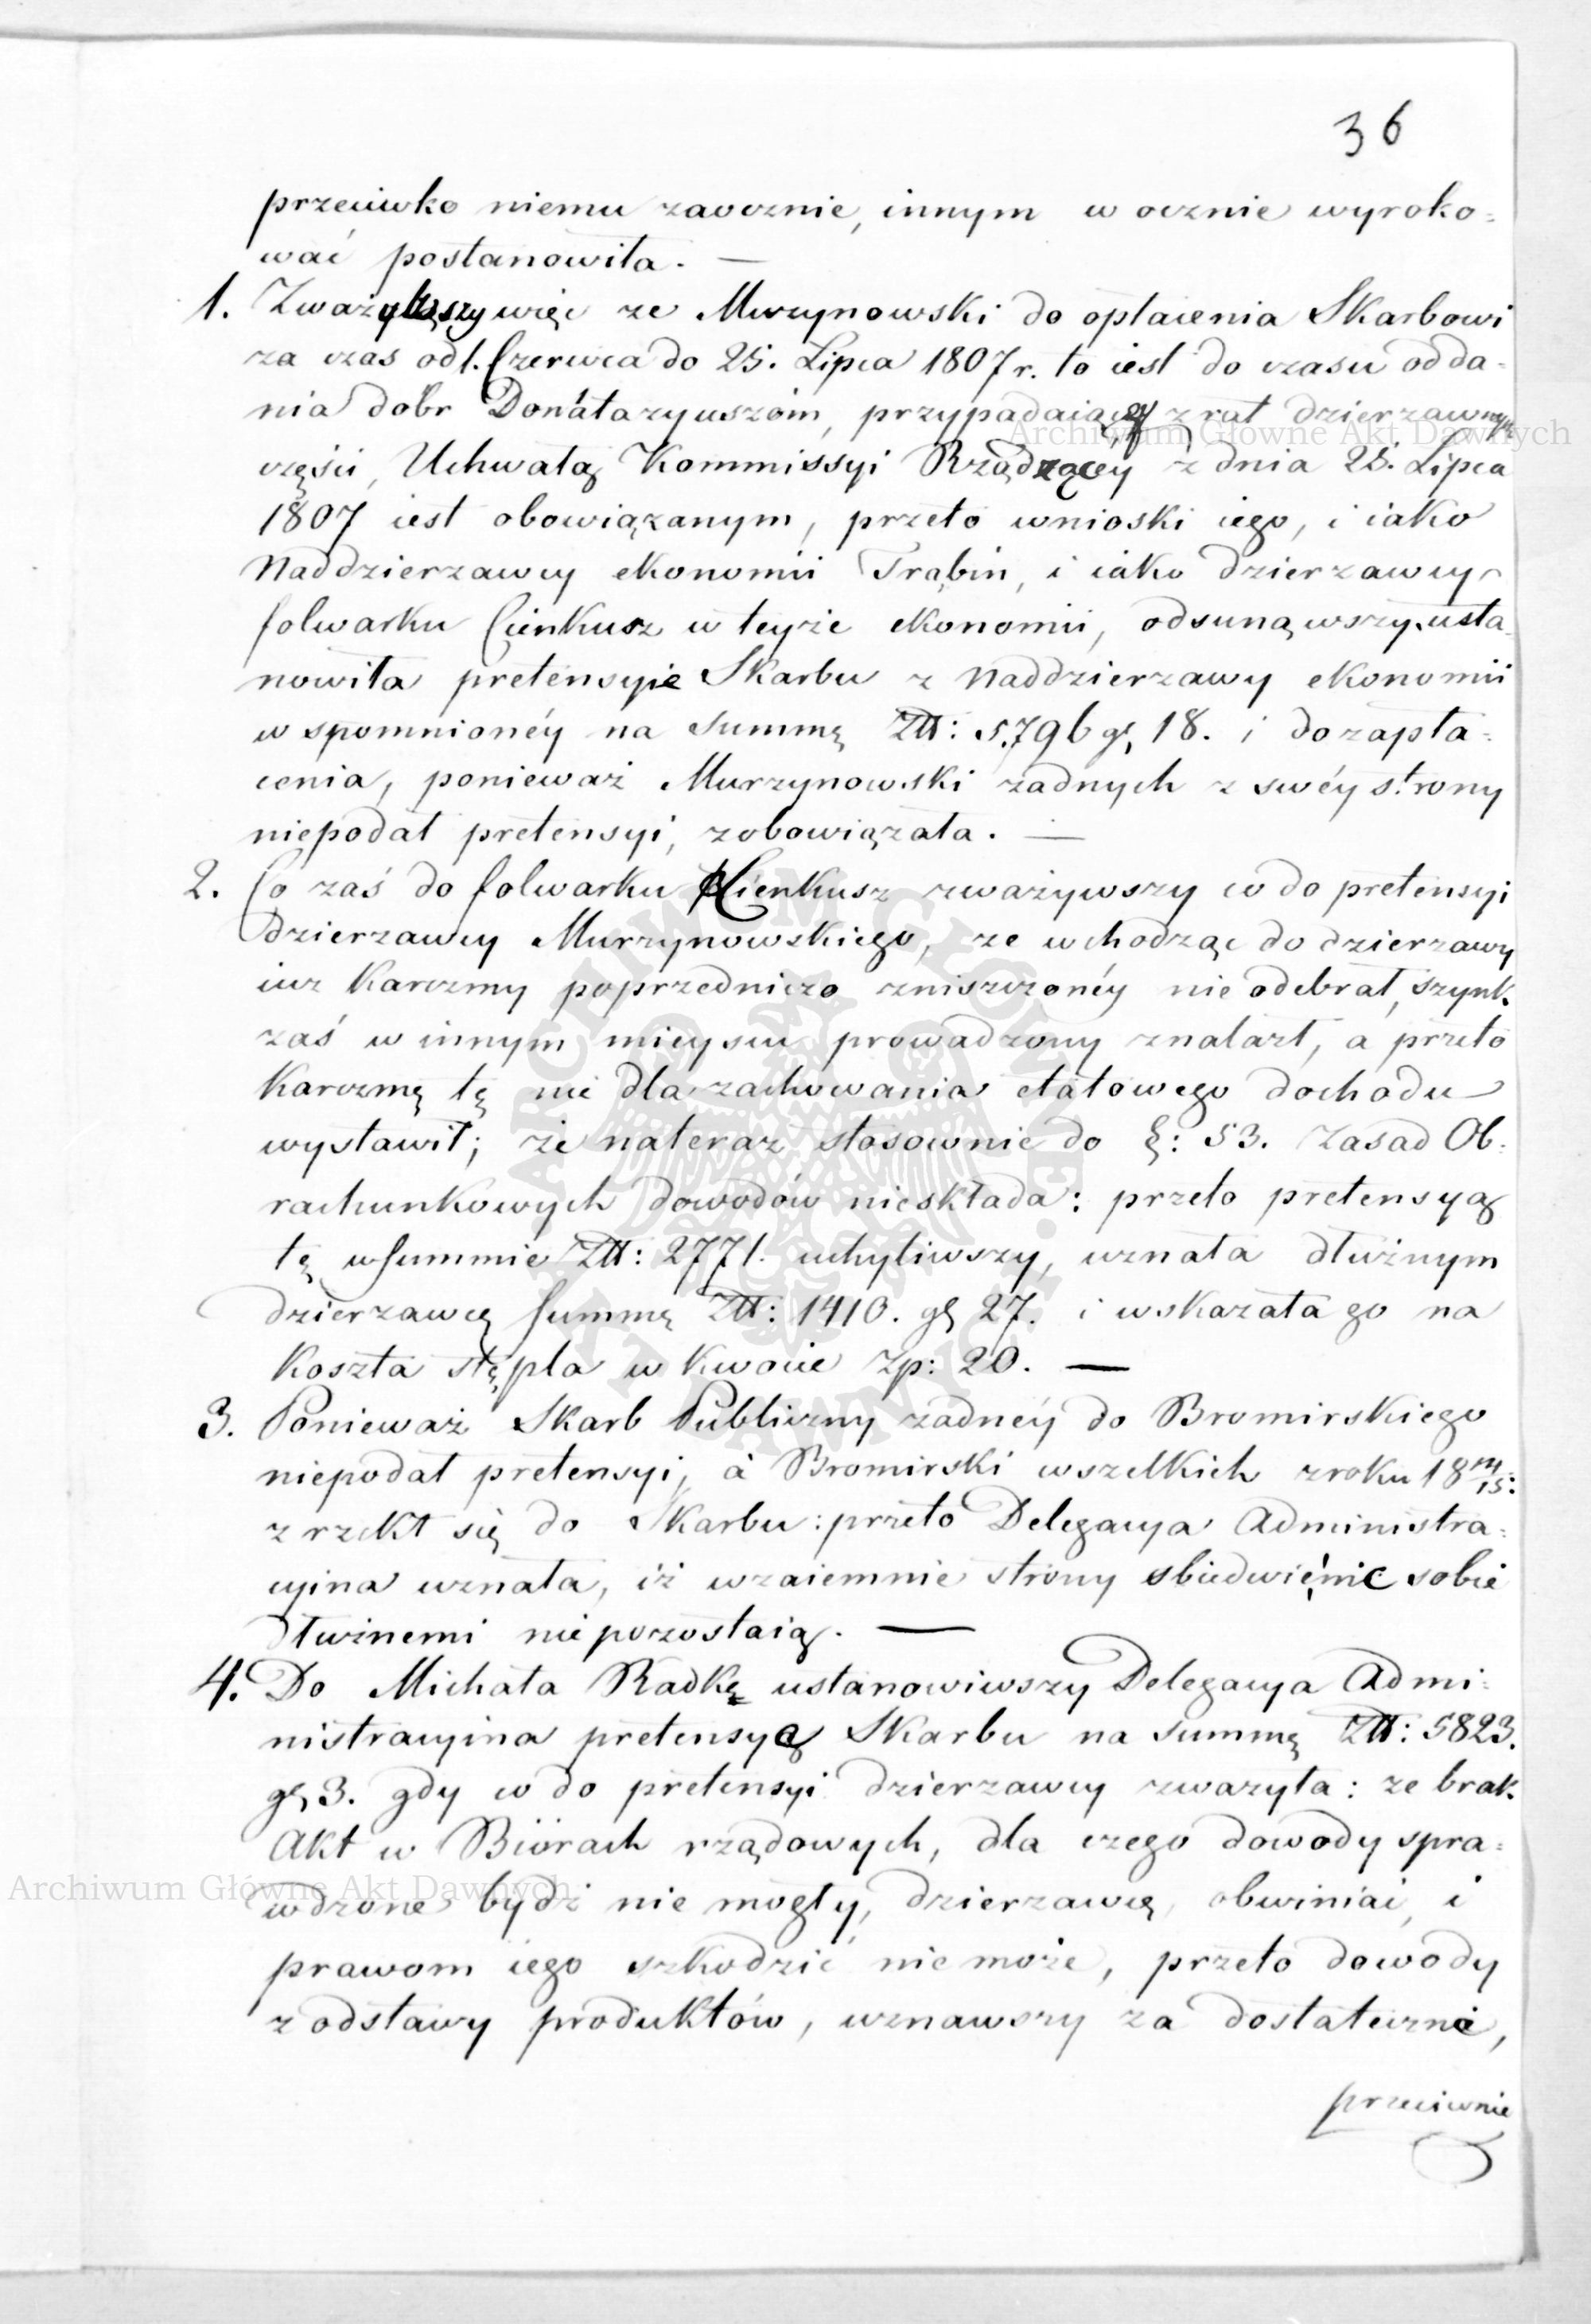 36
przeciwko niemu zaocznie, innym w ocznie wyroko-
wać postanowiła. —
1. Zważywszy więc ze Murzynowski do opłacenia Skarbowi
za czas od 1. Czerwca do 25. Lipca 1807 r. to iest do czasu odda-
nia dobr Donataryuszom, przypadaiącéy z rat dzierzawnych
części, Uchwałą Kommissyi Rządzącéy z dnia 25. Lipca
1807 iest obowiązanym, przeto wnioski iego, i iako
Naddzierzawcy ekonomii Trąbin, i iako dzierzawcy
folwarku Cienkusz w teyże ekonomii, odsunąwszy, usta-
nowiła pretensyie Skarbu z Naddzierzawy ekonomii
wspomnionéy na summę Złt: 5,796 gr 18. i do zapła-
cenia, ponieważ Murzynowski żadnych z swéy strony
niepodał pretensyi, zobowiązała. —
2. Co zaś do folwarku Cienkusz zważywszy co do pretensyi
dzierzawcy Murzynowskiego, ze wchodząc do dzierzawy
iuz Karczmy poprzedniczo zniszczonéy nie odebrał, szynk
zaś w innym mieyscu prowadzony znalazł, a przeto
Karczmę tę nie dla zachowania etatowego dochodu
wystawił; że nateraz stosownie do §: 53. Zasad Ob-
rachunkowych dowodów nieskłada: przeto pretensyą
tę w summie Złt: 2771. uchyliwszy, uznała dłużnym
dzierzawcę summę Złt: 1410. gr 27. i wskazała go na
Koszta stępla w Kwocie Zp: 20. —
3. Ponieważ Skarb Publiczny żadnéy do Bromirskiego
niepodał pretensyi, a Bromirski wszelkich z roku 18 14/15:
zrzekł się do Skarbu: przeto Delegacya Administra-
cyina uznała, iż wzaiemnie strony obiedwie nic sobie
dłużnemi nie pozostaią. —
4. Do Michała Radkę ustanowiwszy Delegacya Admi-
nistracyina pretensyą Skarbu na summę Złt: 5823.
gr 3. gdy co do pretensyi dzierzawcy zwazyła: ze brak
Akt w Biórach rządowych, dla czego dowody spra-
wdzone bydź nie mogły, dzierzawcę, obwiniać, i
prawom iego szkodzić nie może, przeto dowody
z odstawy produktów, uznawszy za dostateczne,
przeciwnie
Archiwum Główne Akt Dawnych
Archiwum Główne Akt Dawnych
ARCHIWUM GŁÓWNE AKT DAWNYCH